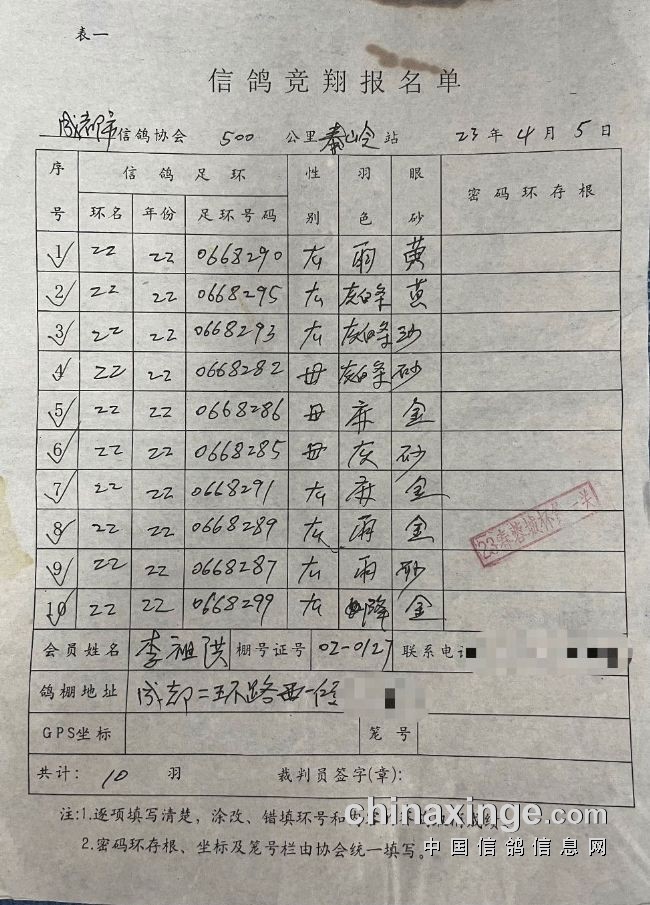 表一
信鸽竞翔报名单
成都市信鸽协会 500 公里秦岭站 23年4月5日
序号 信鸽足环 性别 羽色 眼砂 密码环存根
环名 年份 足环号码
1 22 22 0668290 雨 黄
2 22 22 0668295 灰白条 黄
3 22 22 0668293 灰白条 砂
4 22 22 0668282 母 灰白条 砂
5 22 22 0668286 母 麻 金
6 22 22 0668285 母 灰 砂
7 22 22 0668291 麻 金
8 22 22 0668289 雨 金
9 22 22 0668287 雨 砂
10 22 22 0668299 绛 金
会员姓名 李祖洪 棚号证号 02-0127 联系电话
鸽棚地址 成都二环路西一段
GPS坐标 笼号
共计: 10 羽 裁判员签字(章):
注:1.逐项填写清楚,涂改、错填环号和
2.密码环存根、坐标及笼号栏由协会统一填写。
chinaxinge.com
中国信鸽信息网